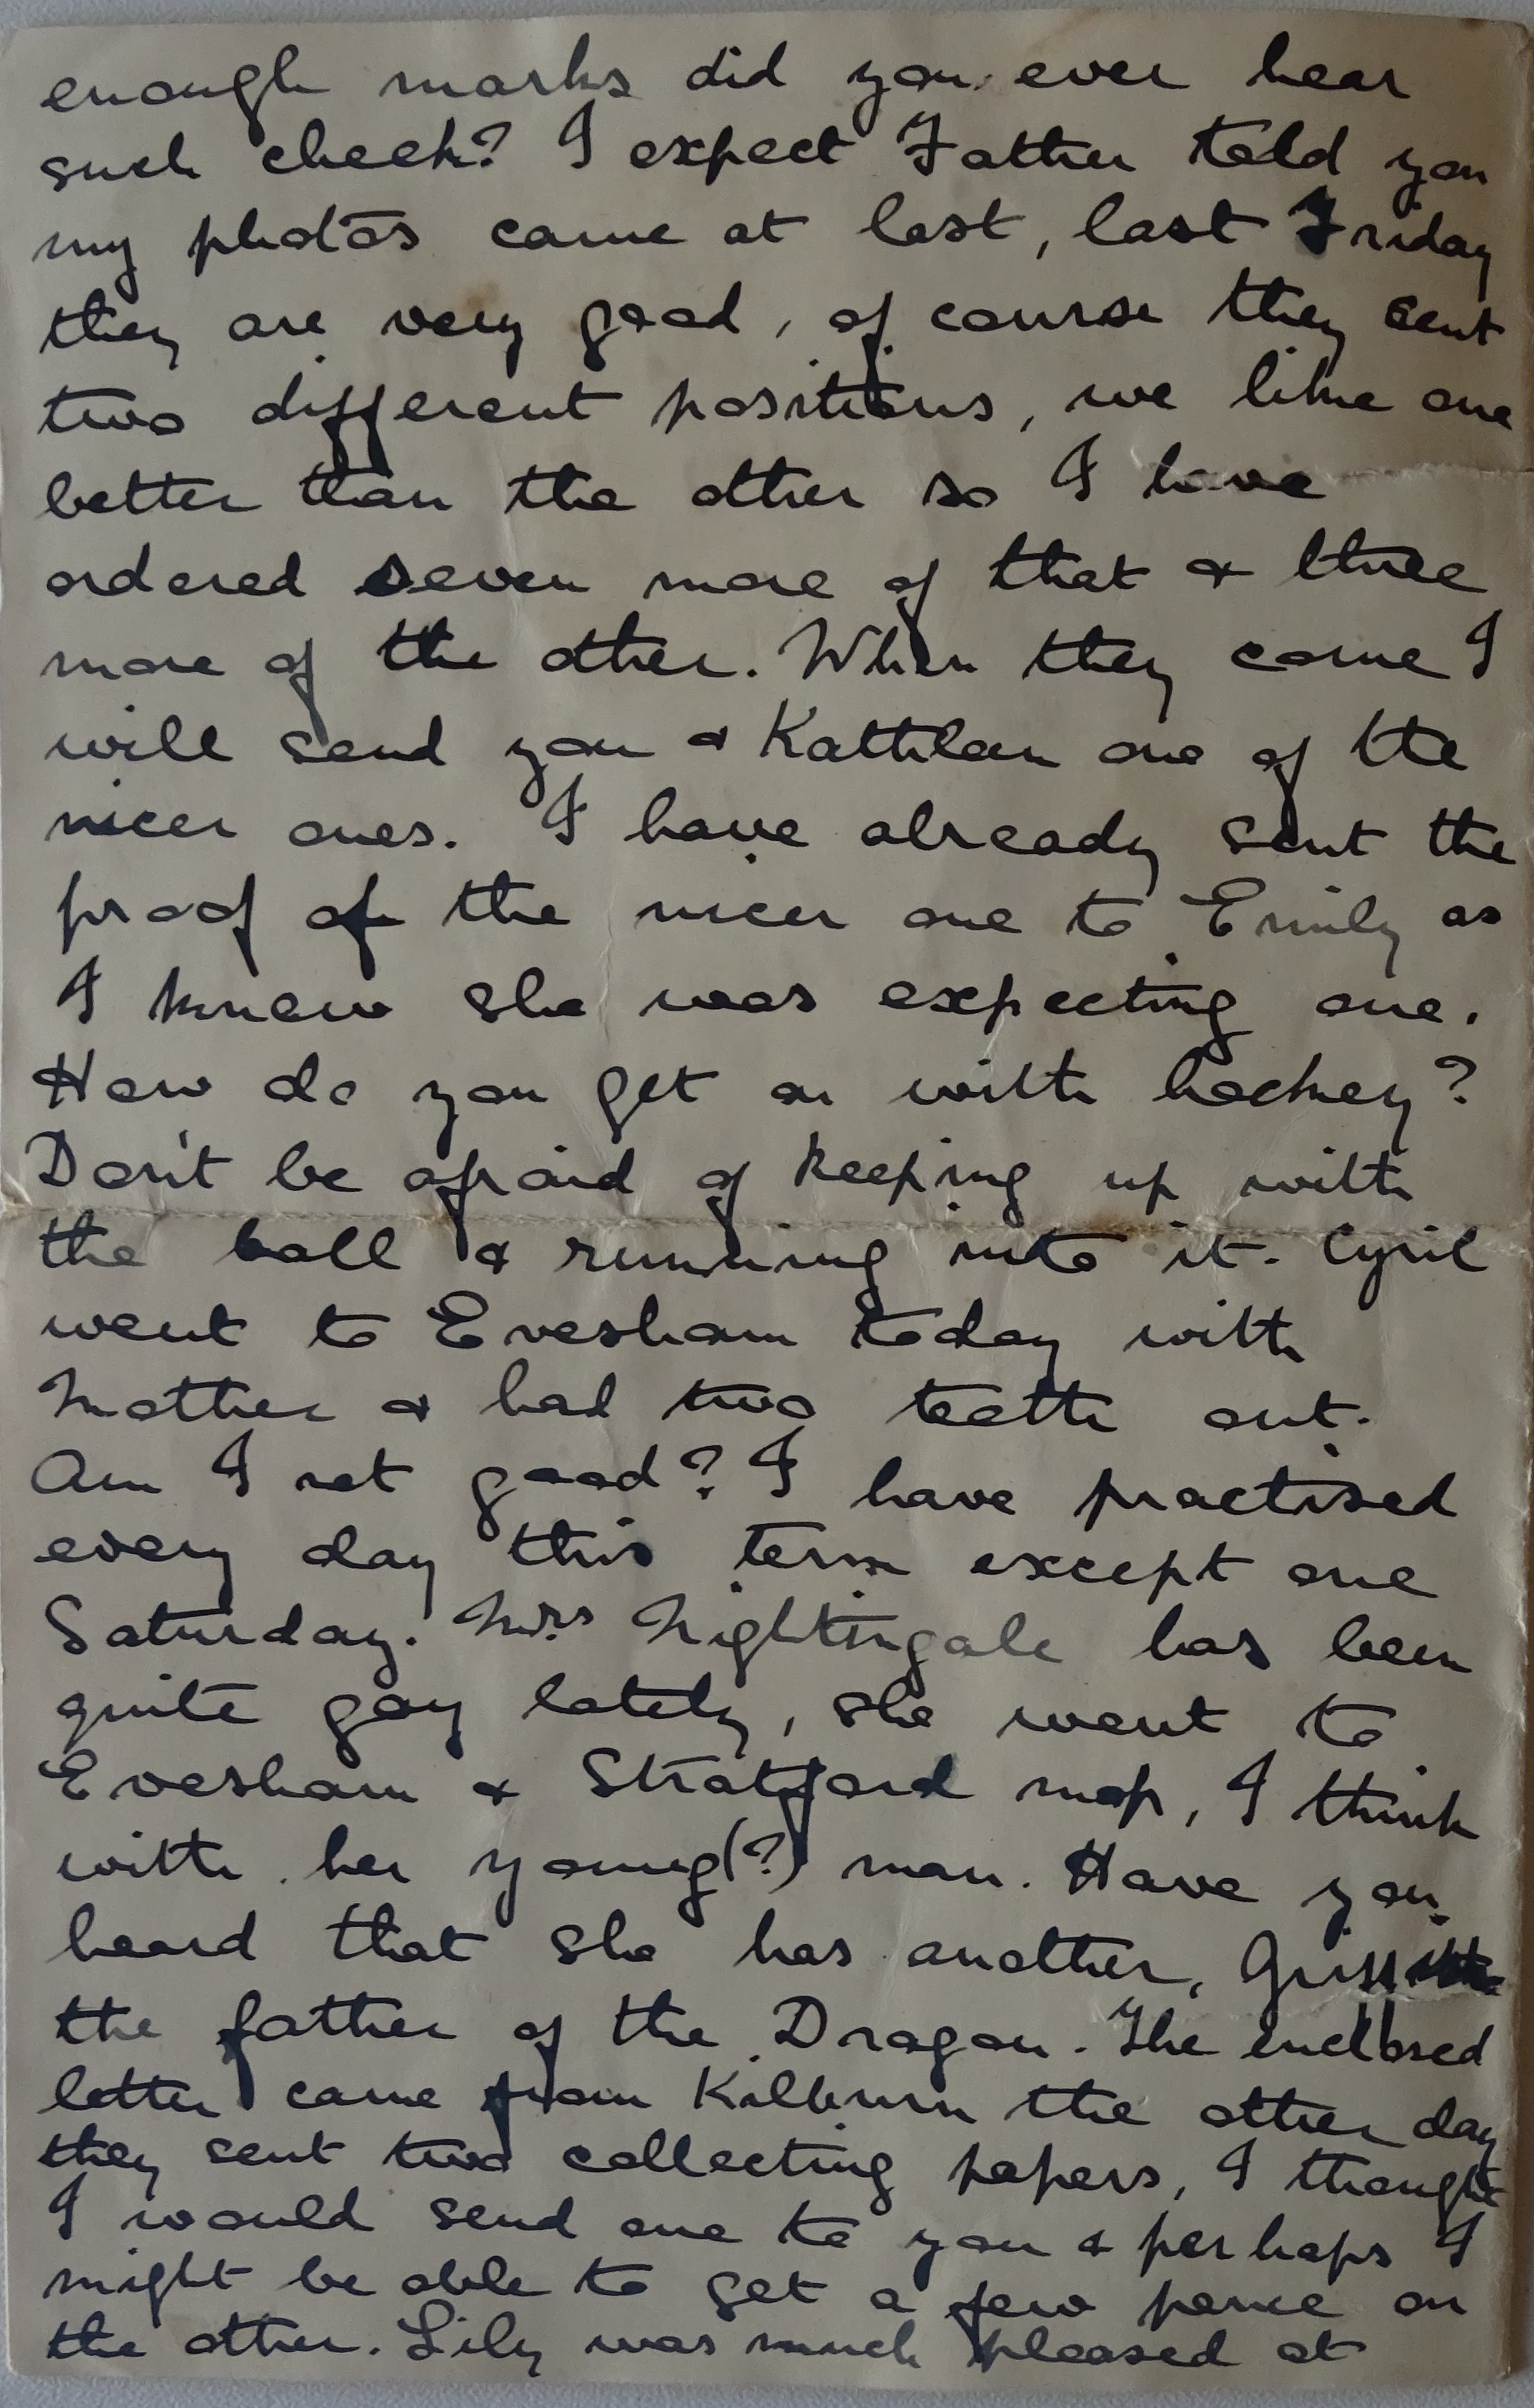 enough marks did you ever hear
such cheek? I expect Father told you
my photos came at last, last Friday
they are very good, of course they sent
two different positions, we like one
better than the other so I have
ordered seven more of that & three
more of the other. When they come I
will send you & Kathleen one of the
nicer ones. I have already sent the
proof of the nicer one to Emily as
I knew she was expecting one.
How do you get on with hockey?
Don't be afraid of keeping up with
the ball & running into it. Cyril
went to Evesham today with
Mother & had two teeth out.
Am I not good? I have practised
every day this term except one
Saturday. Mrs Nightingale has been
quite gay lately, she went to
Evesham & Stratford mop, I think
with her young(?) man. Have you
heard that she has another,
the father of the Dragon. The enclosed
letter came from Kilburn the other day
they sent two collecting papers, I thought
I would send one to you & perhaps I
might be able to get a few pence on
the other. Lily was much pleased at